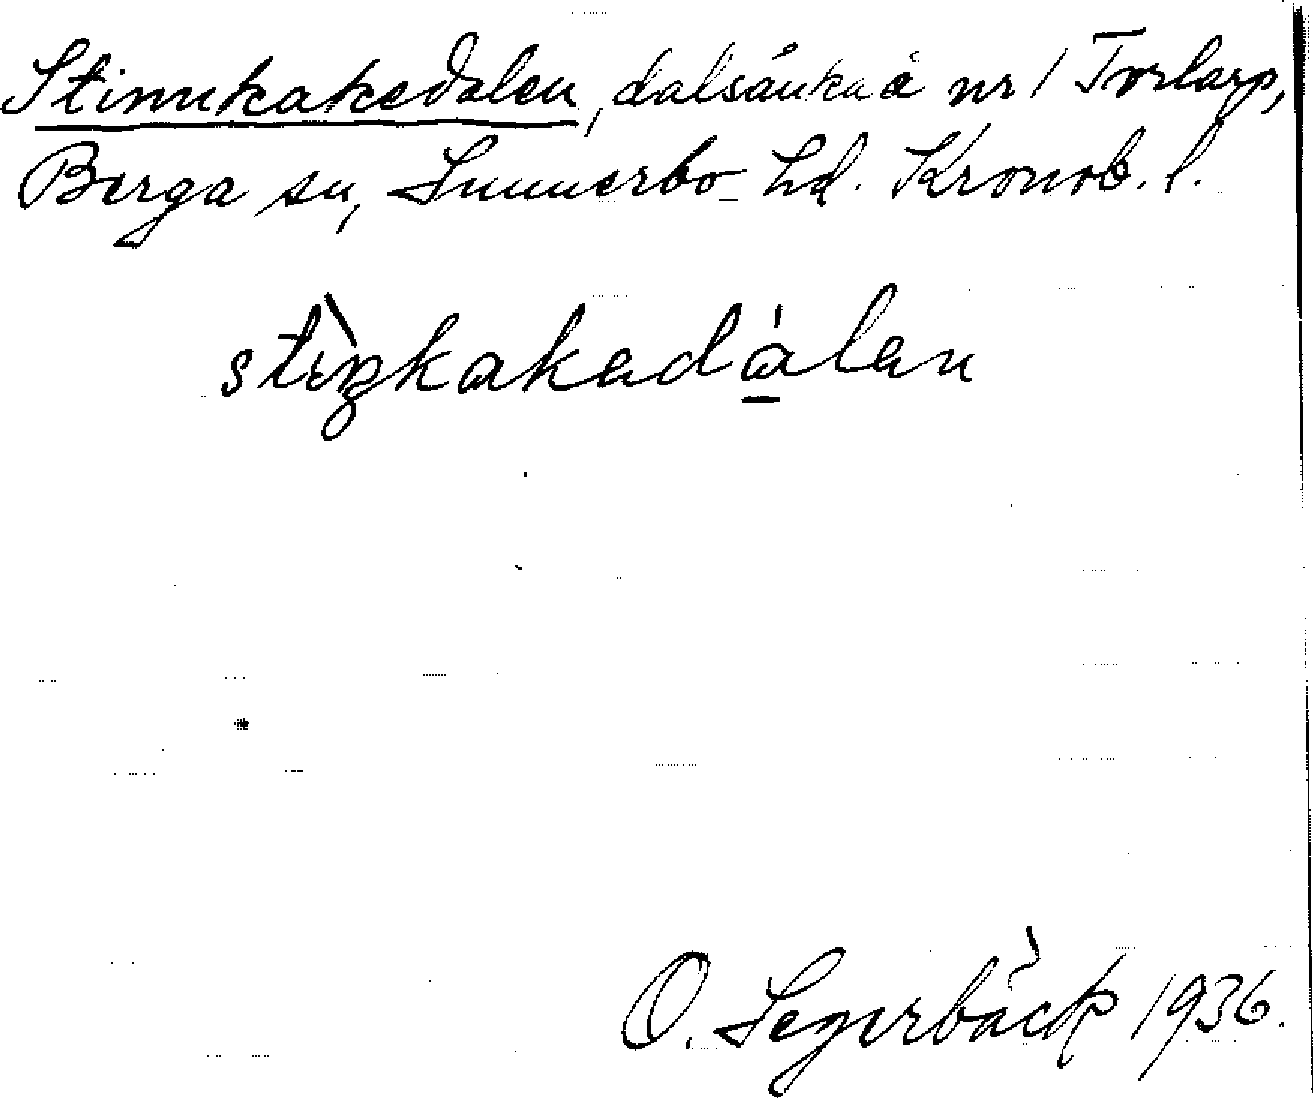 Stinnkakedalen, dalsänka å nr 1 Torlarp,
Berga sn, Sunnerbo hd. Kronob. l.
O. Segerbäck 1936.